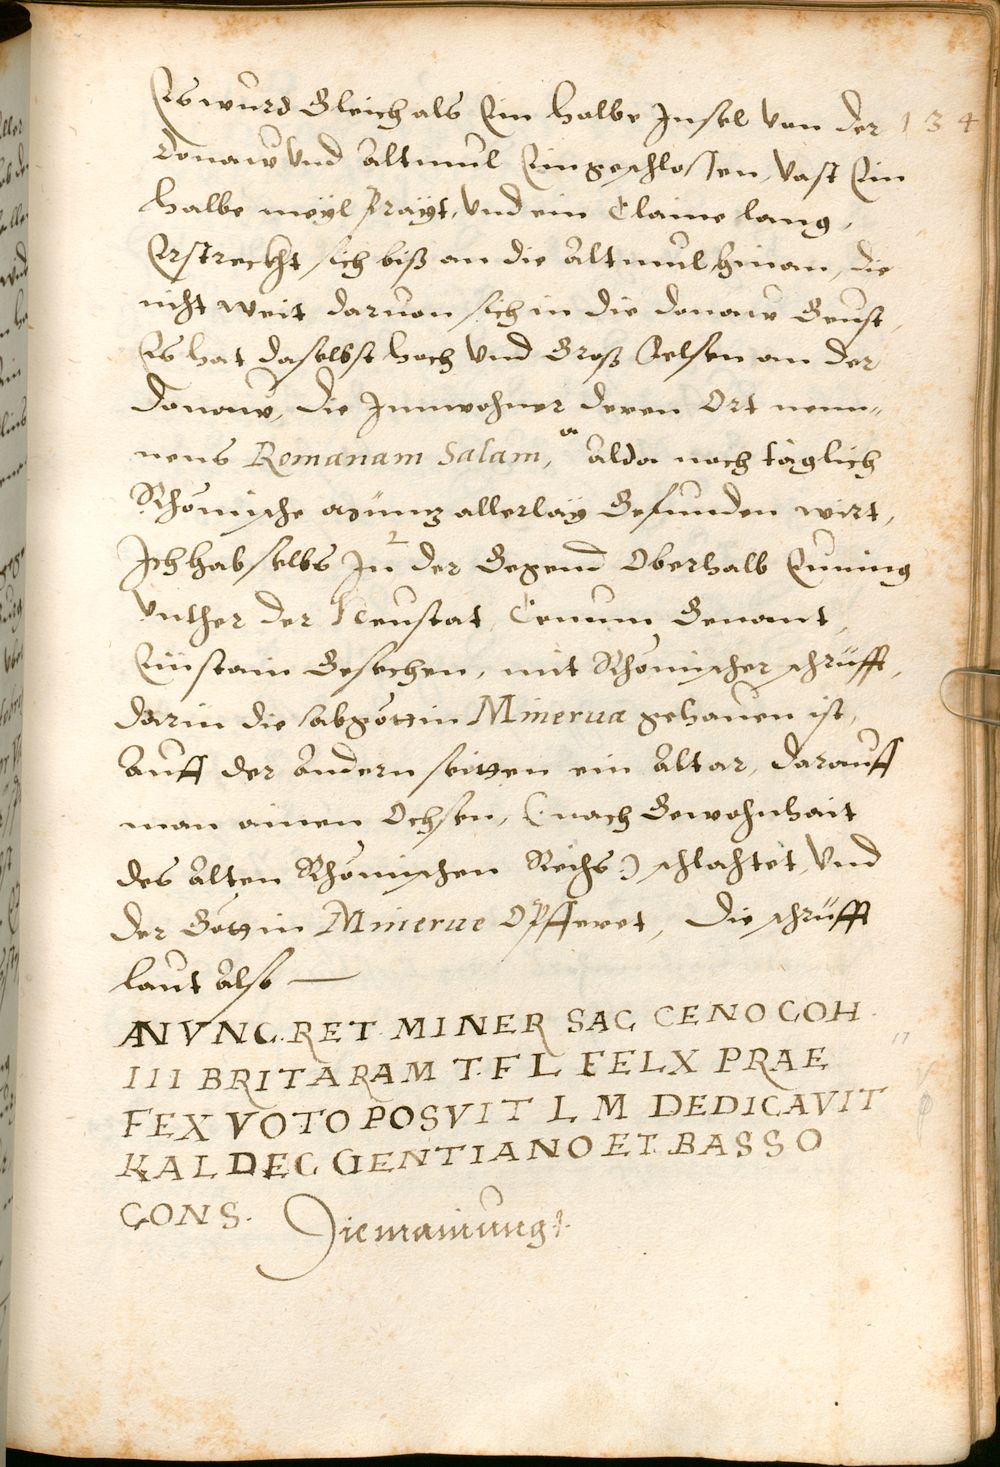 Es wurd Gleich als Ein halbe Insel von der 134
Donaw vnd Altmul Eingeschlossen, vast Ein
halbe meyl prayt, vnd ein Claine lang,
Erstreckht sich biß an die Altmul hinan, die
nicht weit daruon sich in die Donaw Geust,
Es hat daselbst hoch vnd Groß Felsen an der
Donaw, die Innwohner deren Ort nenn„
nens Romanam Salam, a alda noch täglich
Rhömische münz allerlay Gefunden wirt,
Ich hab selbs In 2 der Gegend Oberhalb Eining
vnther der Neustat, Cenum Genant,
Ein stain Gesechen, mit Rhömischer schrüfft,
darin die abgöttin Minerua gehauen ist,
Auff der Andern seitten ein Altar, darauff
man ainen Ochsen, (: nach Gewohnhait
des Alten Rhömischen Reichs :) schlachtet, vnd
der Göttin Minerue Opfferet, die schrüfft
laut Also —
ANVNC. RET MINER SAC CENO COH.
III BRITARAM T. FL FELX PRAE
FEX VOTO POSVIT L M DEDICAVIT
KAL DEC GENTIANO ET. BASSO
CONS. Die mainung:.